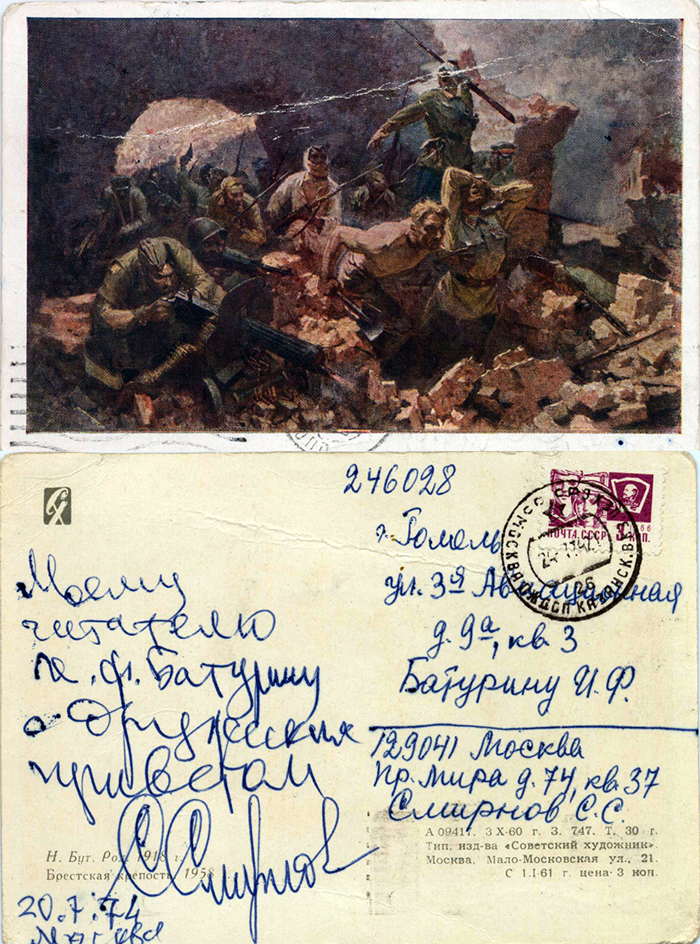 246028
г. Гомель
ул. 3я Авиационная
д. 9а, кв. 3
Батурину И.Ф.
129041 Москва
пр. Мира д. 74, кв. 37
Смирнов С.С.
Моему
читателю
И. Ф. Батурину
с дружеским
приветом
ССмирнов
20.7.74
Москва
ПОЧТА СССР
КОП.
Н. Бут. Род. 1918 г.
Брестская крепость, 1958
А 09417. 3 X-60 г. З. 747. Т. 30 г.
Тип. изд-ва «Советский художник»
Москва. Мало-Московская ул., 21.
С 1.I-61 г. цена 3 коп.